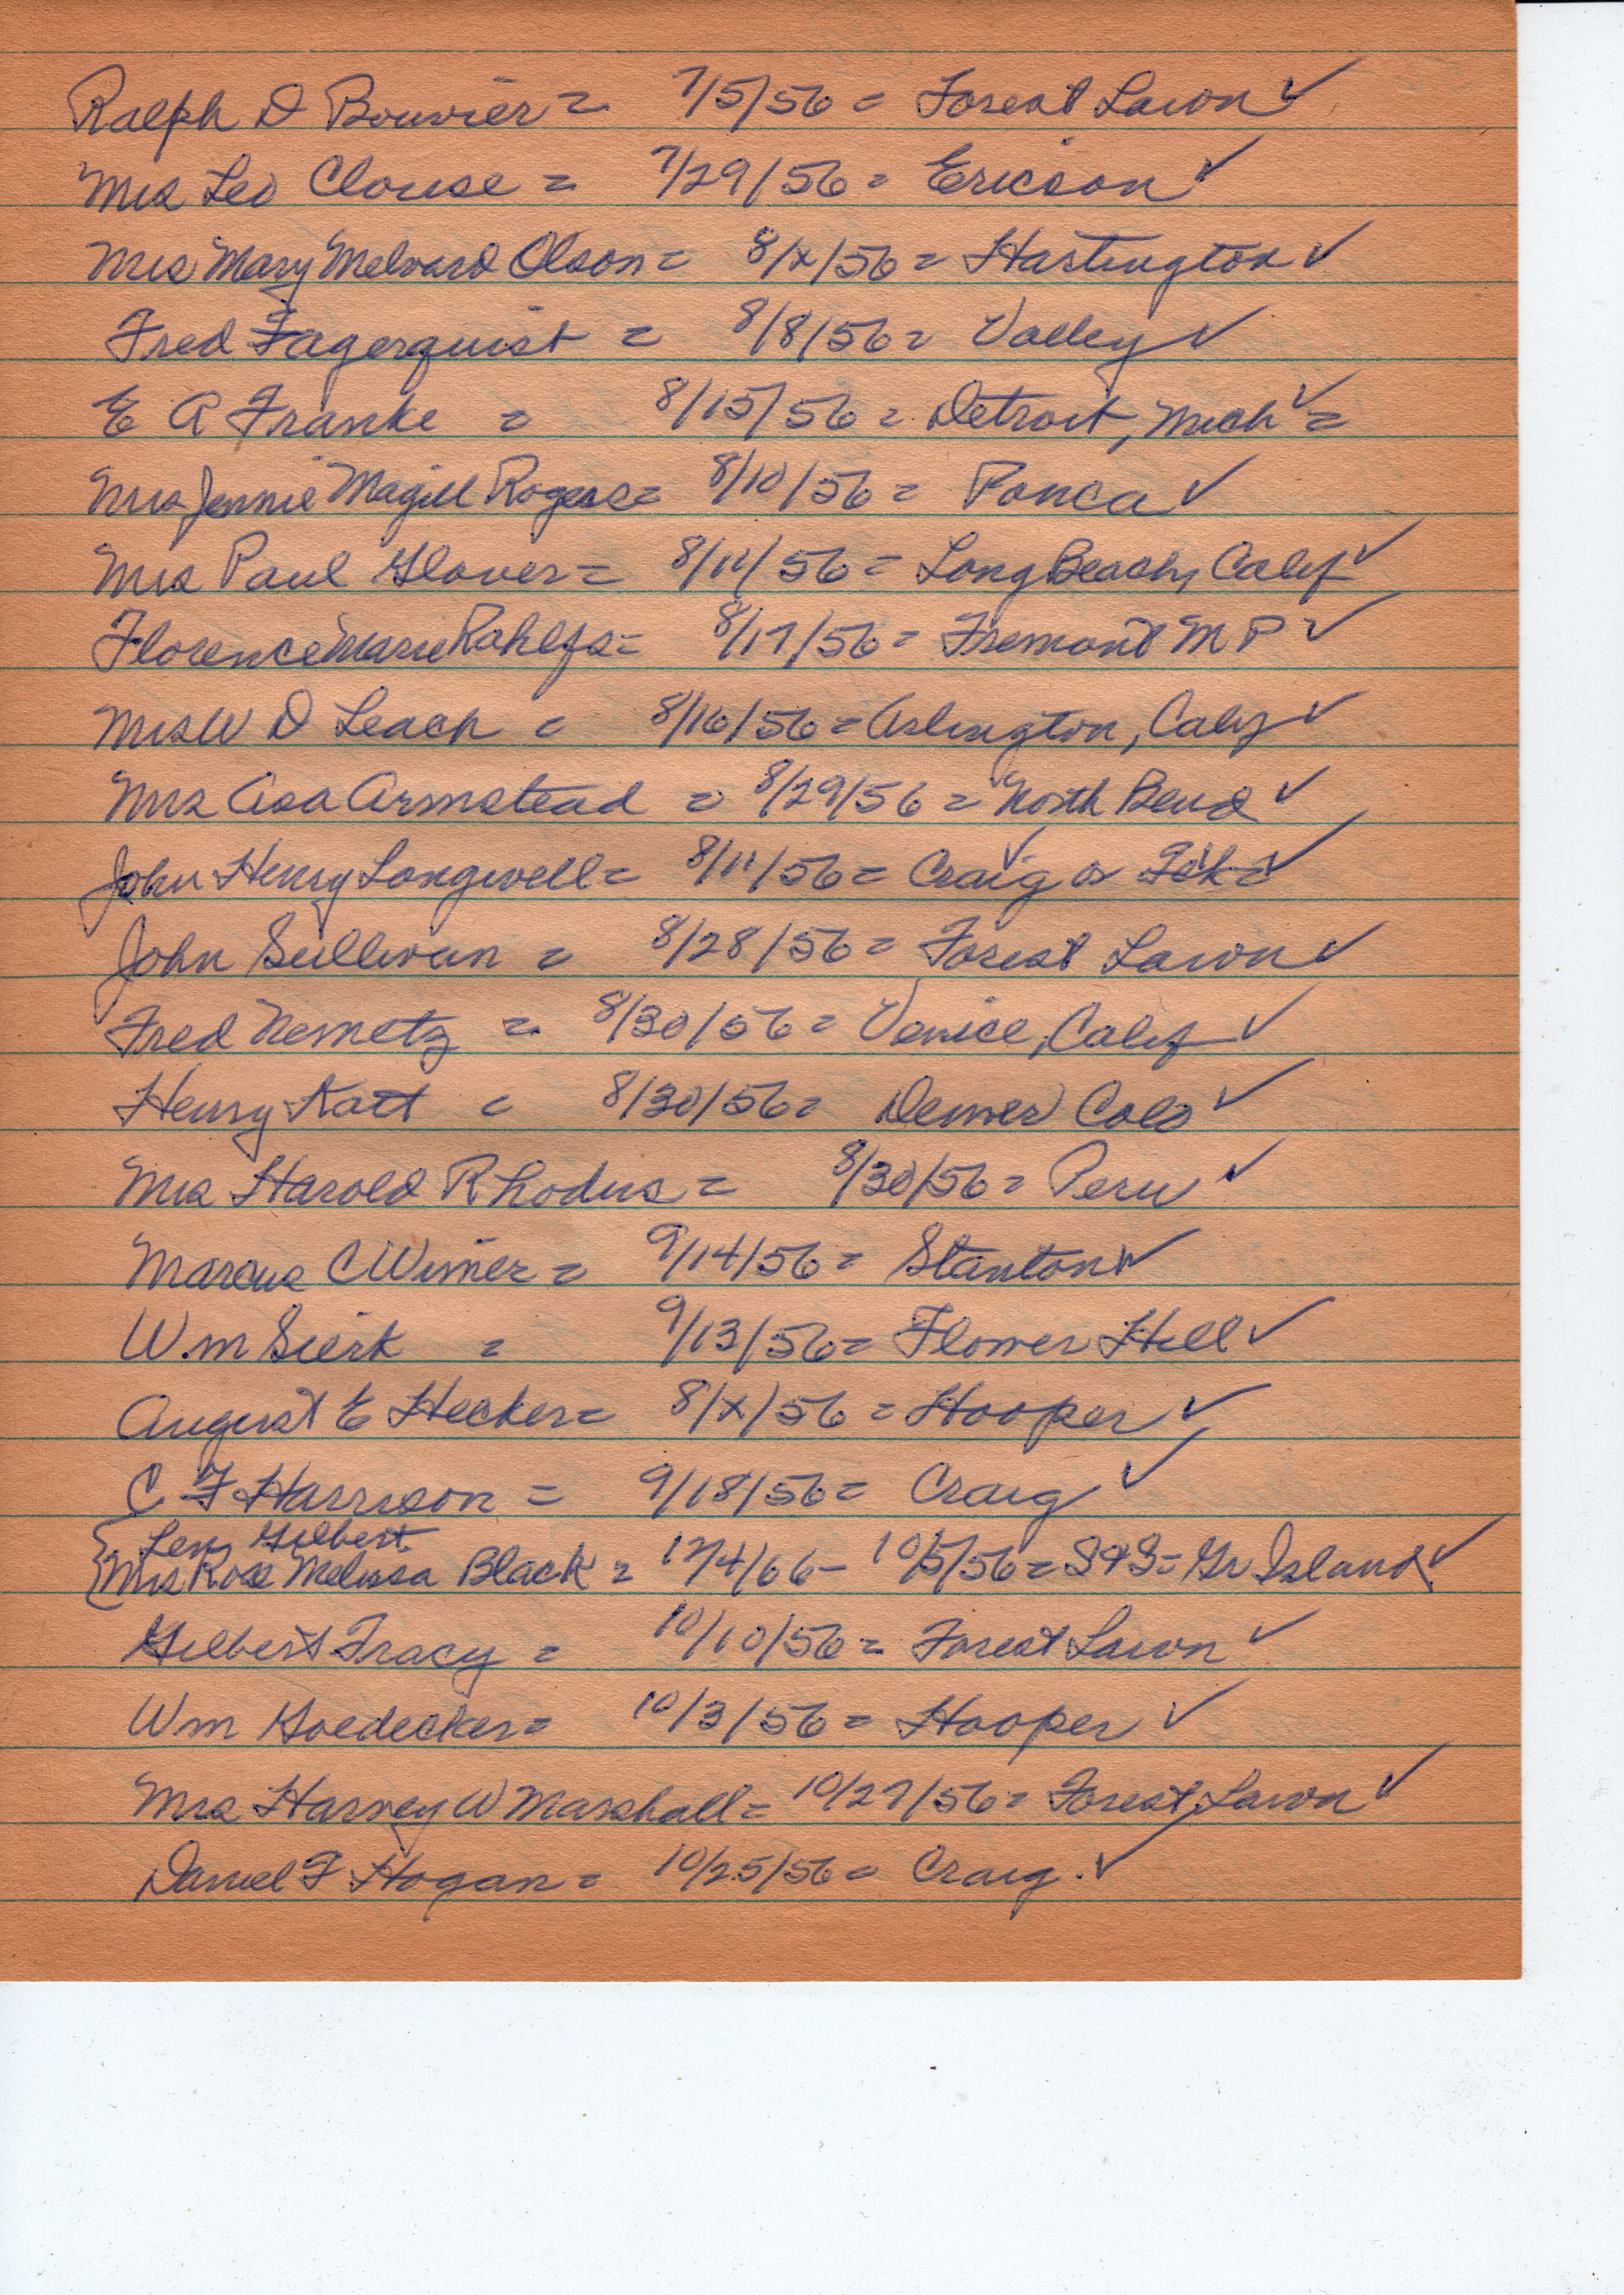 Ralph D Bouvier = 7/5/56 = Forest Lawn ✓
Mrs Leo Clouse = 7/29/56 = Ericson ✓
Mrs Mary Melvard Olson = 8/x/56 = Hartington ✓
Fred Fagerquist = 8/8/56 = Valley ✓
E A Franke = 8/15/56 = Detroit, Mich ✓ =
Mrs Jennie Magill Rogers = 8/10/56 = Ponca ✓
Mrs Paul Glover = 8/11/56 = Long Beach, Calif ✓
Florence Marie Rahlfs = 8/17/56 = Fremont M P ✓
Mrs W D Leach = 8/16/56 = Arlington, Calif ✓
Mrs Asa Armstead = 8/29/56 = North Bend ✓
John Henry Longwell = 8/11/56 = Craig ✓ or Tek = ✓
John Sullivan = 8/28/56 = Forest Lawn ✓
Fred Nemetz = 8/30/56 = Venice, Calif ✓
Henry Katt = 8/30/56 = Denver Colo ✓
Mrs Harold Rhodus = 8/30/56 = Peru ✓
Marcus C Wimer = 9/14/56 = Stanton ✓
W.m Sierk = 9/13/56 = Flower Hill ✓
August E Hecker = 8/x/56 = Hooper ✓
C F Harrison = 9/18/56 = Craig ✓
Gilbert
Mrs Rose Melissa Black = 12/4/66 - 10/5/56 = Gr Island ✓
Gilbert Tracy = 10/10/56 = Forest Lawn ✓
Wm Goedecker = 10/3/56 = Hooper ✓
Mrs Harvey W Marshall = 10/27/56 = Forest Lawn ✓
Daniel F Hogan = 10/25/56 = Craig. ✓